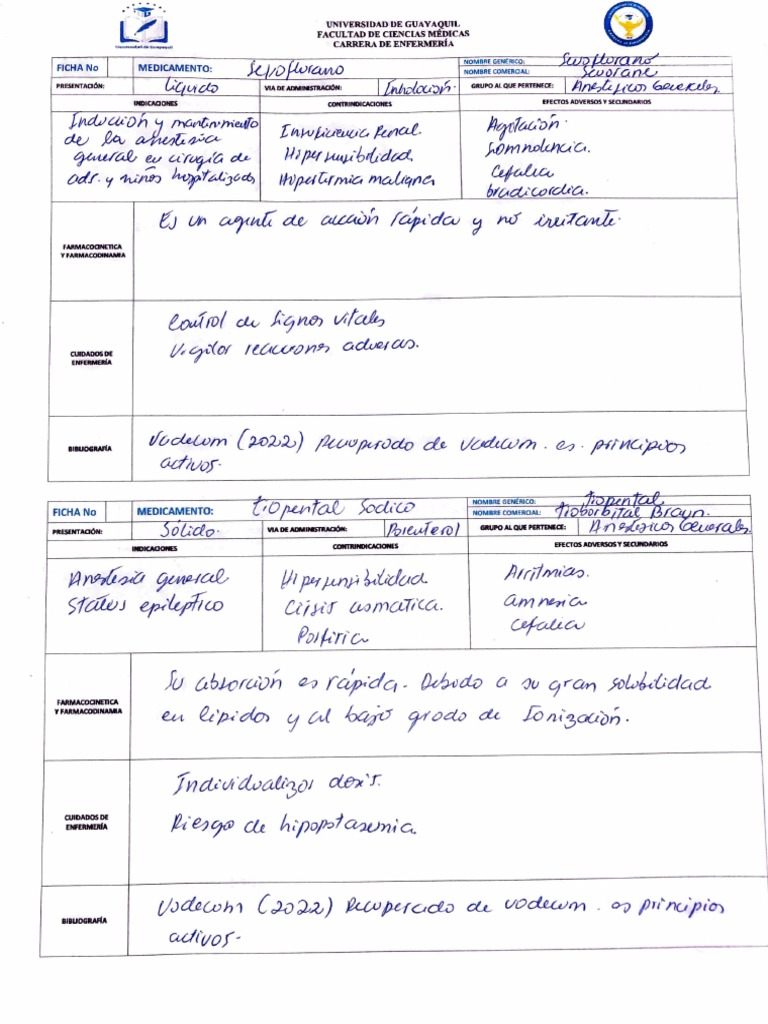 UNIVERSIDAD DE GUAYAQUIL
FACULTAD DE CIENCIAS MÉDICAS
CARRERA DE ENFERMERÍA
Universidad de Guayaquil
FICHA No MEDICAMENTO: Sevoflurano NOMBRE GENÉRICO: Sevoflurano
NOMBRE COMERCIAL: Sevorane
PRESENTACIÓN: Líquido VIA DE ADMINISTRACIÓN: Inhalación. GRUPO AL QUE PERTENECE: Anestésicos Generales
INDICACIONES CONTRINDICACIONES EFECTOS ADVERSOS Y SECUNDARIOS
Inducción y mantenimiento
de la anestesia
general en cirugía de
ads. y niños hospitalizads
Insuficiencia Renal.
Hipersensibilidad
Hipertermia maligna
Agitación.
Somnolencia.
Cefalea
bradicardia.
FARMACOCINETICA
Y FARMACODINAMIA
Es un agente de acción rápida y no irritante.
CUIDADOS DE
ENFERMERÍA
Control de signos vitales
Vigilar reacciones adversas.
BIBLIOGRAFÍA
Vadecum (2022) Recuperado de vadecum. es. principios
activos.
FICHA No MEDICAMENTO: tiopental Sodico NOMBRE GENÉRICO: tiopental
NOMBRE COMERCIAL: tiobarbital Braun.
PRESENTACIÓN: Sólido. VIA DE ADMINISTRACIÓN: Parenteral GRUPO AL QUE PERTENECE: Anestesicos Generales.
INDICACIONES CONTRINDICACIONES EFECTOS ADVERSOS Y SECUNDARIOS
Anestesia general
States epileptico
Hipersensibilidad
Crisis asmatica.
Porfiria
Arritmias.
amnesia
Cefalea
FARMACOCINETICA
Y FARMACODINAMIA
Su absorción es rápida. Debido a su gran solubilidad
en lípidos y al bajo grado de Ionización.
CUIDADOS DE
ENFERMERÍA
Individualizar dosis.
Riesgo de hipopotasemia.
BIBLIOGRAFÍA
Vadecum (2022) Recuperado de vadecum. es principios
activos.